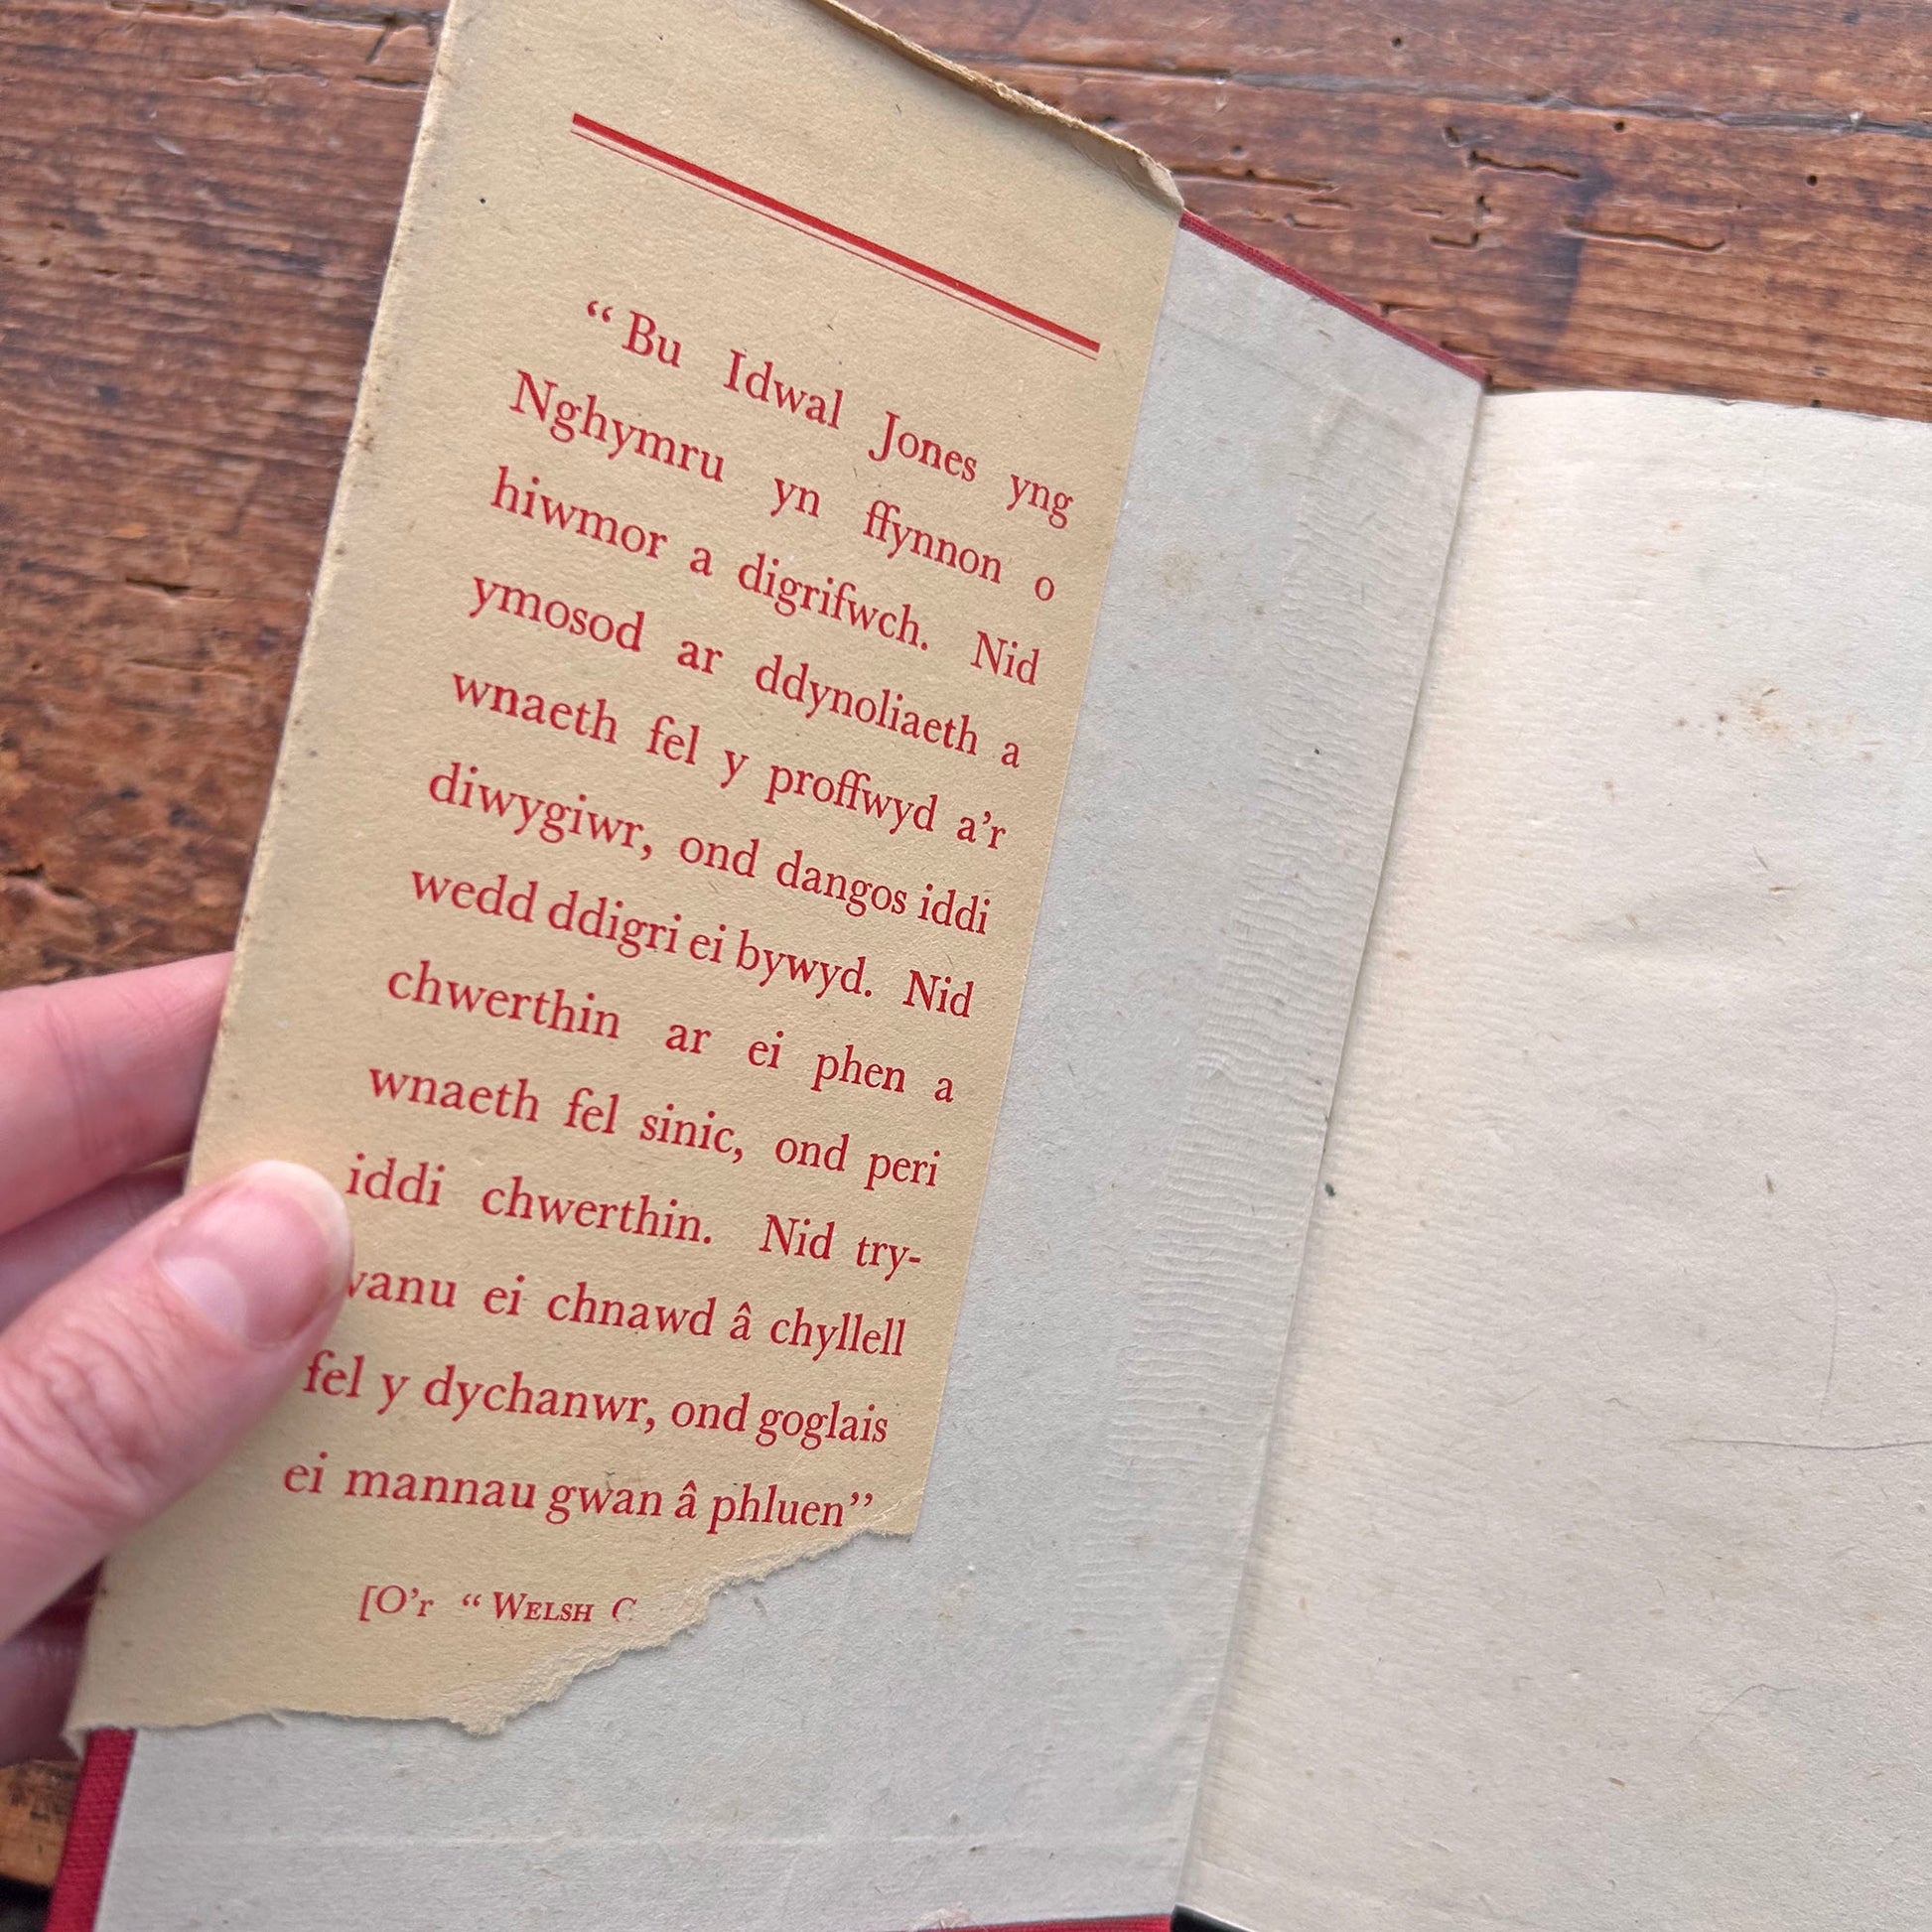 “ Bu Idwal Jones yng
Nghymru yn ffynnon o
hiwmor a digrifwch. Nid
ymosod ar ddynoliaeth a
wnaeth fel y proffwyd a’r
diwygiwr, ond dangos iddi
wedd ddigri ei bywyd. Nid
chwerthin ar ei phen a
wnaeth fel sinic, ond peri
iddi chwerthin. Nid try-
wanu ei chnawd â chyllell
fel y dychanwr, ond goglais
ei mannau gwan â phluen”
[O’r “ WELSH